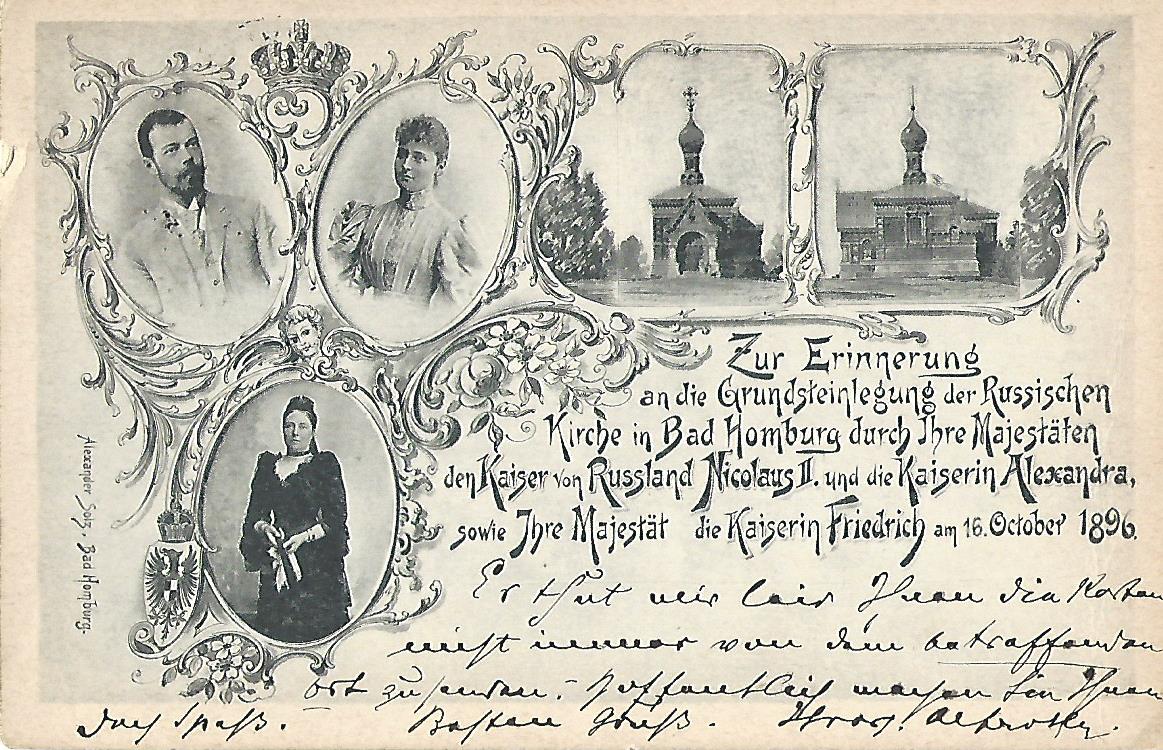 Zur Erinnerung
an die Grundsteinlegung der Russischen
Kirche in Bad Homburg durch Ihre Majestäten
den Kaiser von Russland Nicolaus II. und die Kaiserin Alexandra,
sowie Ihre Majestät die Kaiserin Friedrich am 16. October 1896.
Alexander Solz, Bad Homburg.
Es thut mir leid Ihnen die Karten
nicht immer von dem betreffenden
Ort zu senden. Hoffentlich machen sie Ihnen
doch Spaß. Besten Gruß.